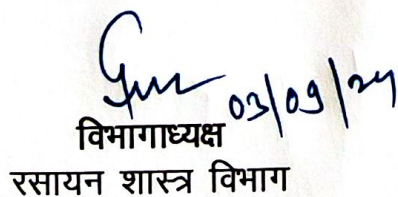 03/09/24
विभागाध्यक्ष
रसायन शास्त्र विभाग